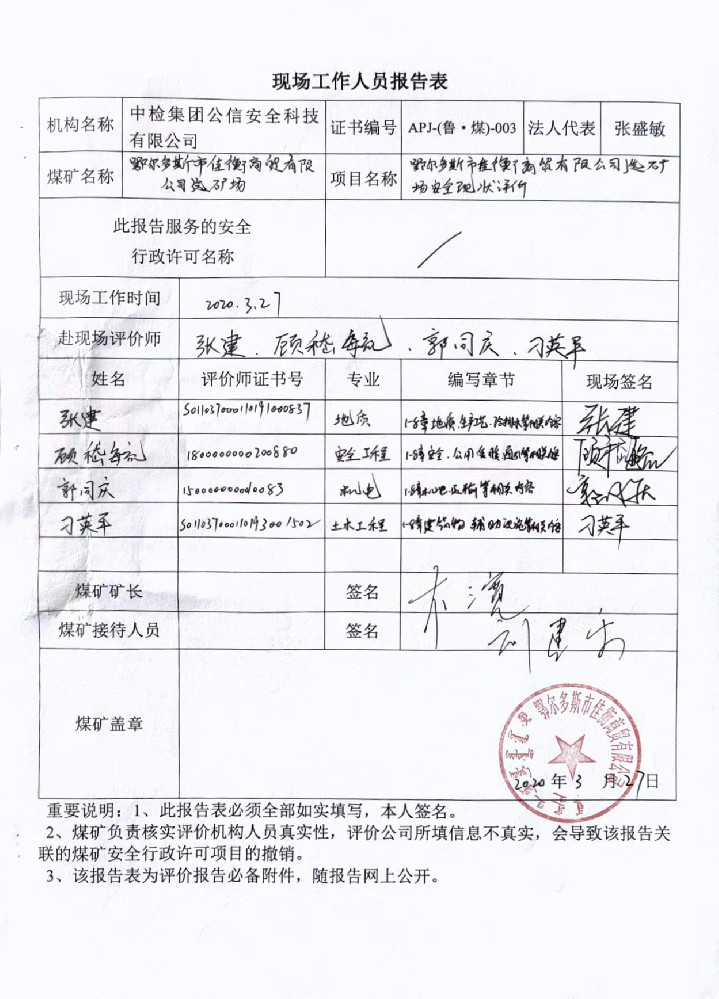 现场工作人员报告表
机构名称 中检集团公信安全科技有限公司 证书编号 APJ-(鲁·煤)-003 法人代表 张盛敏
煤矿名称 鄂尔多斯市佳衡商贸有限公司选矿场 项目名称 鄂尔多斯市佳衡商贸有限公司选矿场安全现状评价
此报告服务的安全
行政许可名称 /
现场工作时间 2020.3.27
赴现场评价师 张建、顾嵇、郭同庆、刁英军
姓名 评价师证书号 专业 编写章节 现场签名
张建 S011037000110191000837 地质 1-8章地质、生产工艺、 张建
顾嵇 1800000000200880 安全工程 1-8章安全、公用
郭同庆 1500000000 机电 1-8章机电运输等相关内容
刁英军 S011037000110193001502 土木工程 1-8章建筑物、辅助设施等相关内容 刁英军
煤矿矿长 签名
煤矿接待人员 签名
煤矿盖章
鄂尔多斯市佳衡商贸有限公司
2020年3月27日
重要说明：1、此报告表必须全部如实填写，本人签名。
2、煤矿负责核实评价机构人员真实性，评价公司所填信息不真实，会导致该报告关
联的煤矿安全行政许可项目的撤销。
3、该报告表为评价报告必备附件，随报告网上公开。